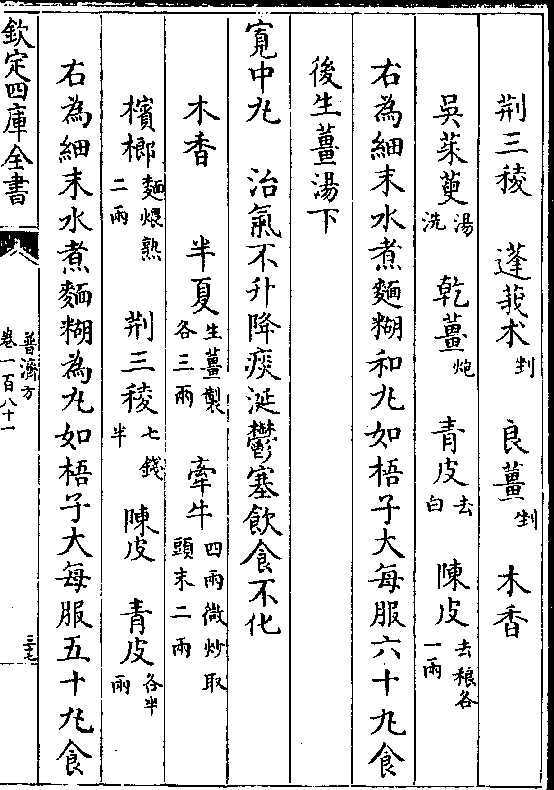 荆三稜 蓬莪朮剉 良薑剉 木香
吳茱萸湯洗 乾薑炮 青皮去白 陳皮去穰各一兩
右為細末水煮麵糊和丸如梧子大每服六十丸食
後生薑湯下
寛中丸 治氣不升降痰涎鬱塞飲食不化
木香 半夏生薑製各三兩 牽牛四兩微炒取頭末二兩
檳榔麵煨熟二兩 荆三稜七錢半 陳皮 青皮各半兩
右為細末水煮麵糊為丸如梧子大每服五十丸食
欽定四庫全書
普濟方
卷一百八十一